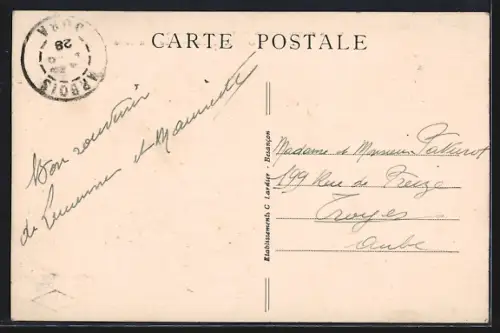 CARTE POSTALE
ARBOIS
JURA
28
Bon souvenir
de Lucienne et Mauricette
Etablissements C. Lardier - Besançon
Madame et Monsieur Paturot
199 Rue de Preize
Troyes
Aube